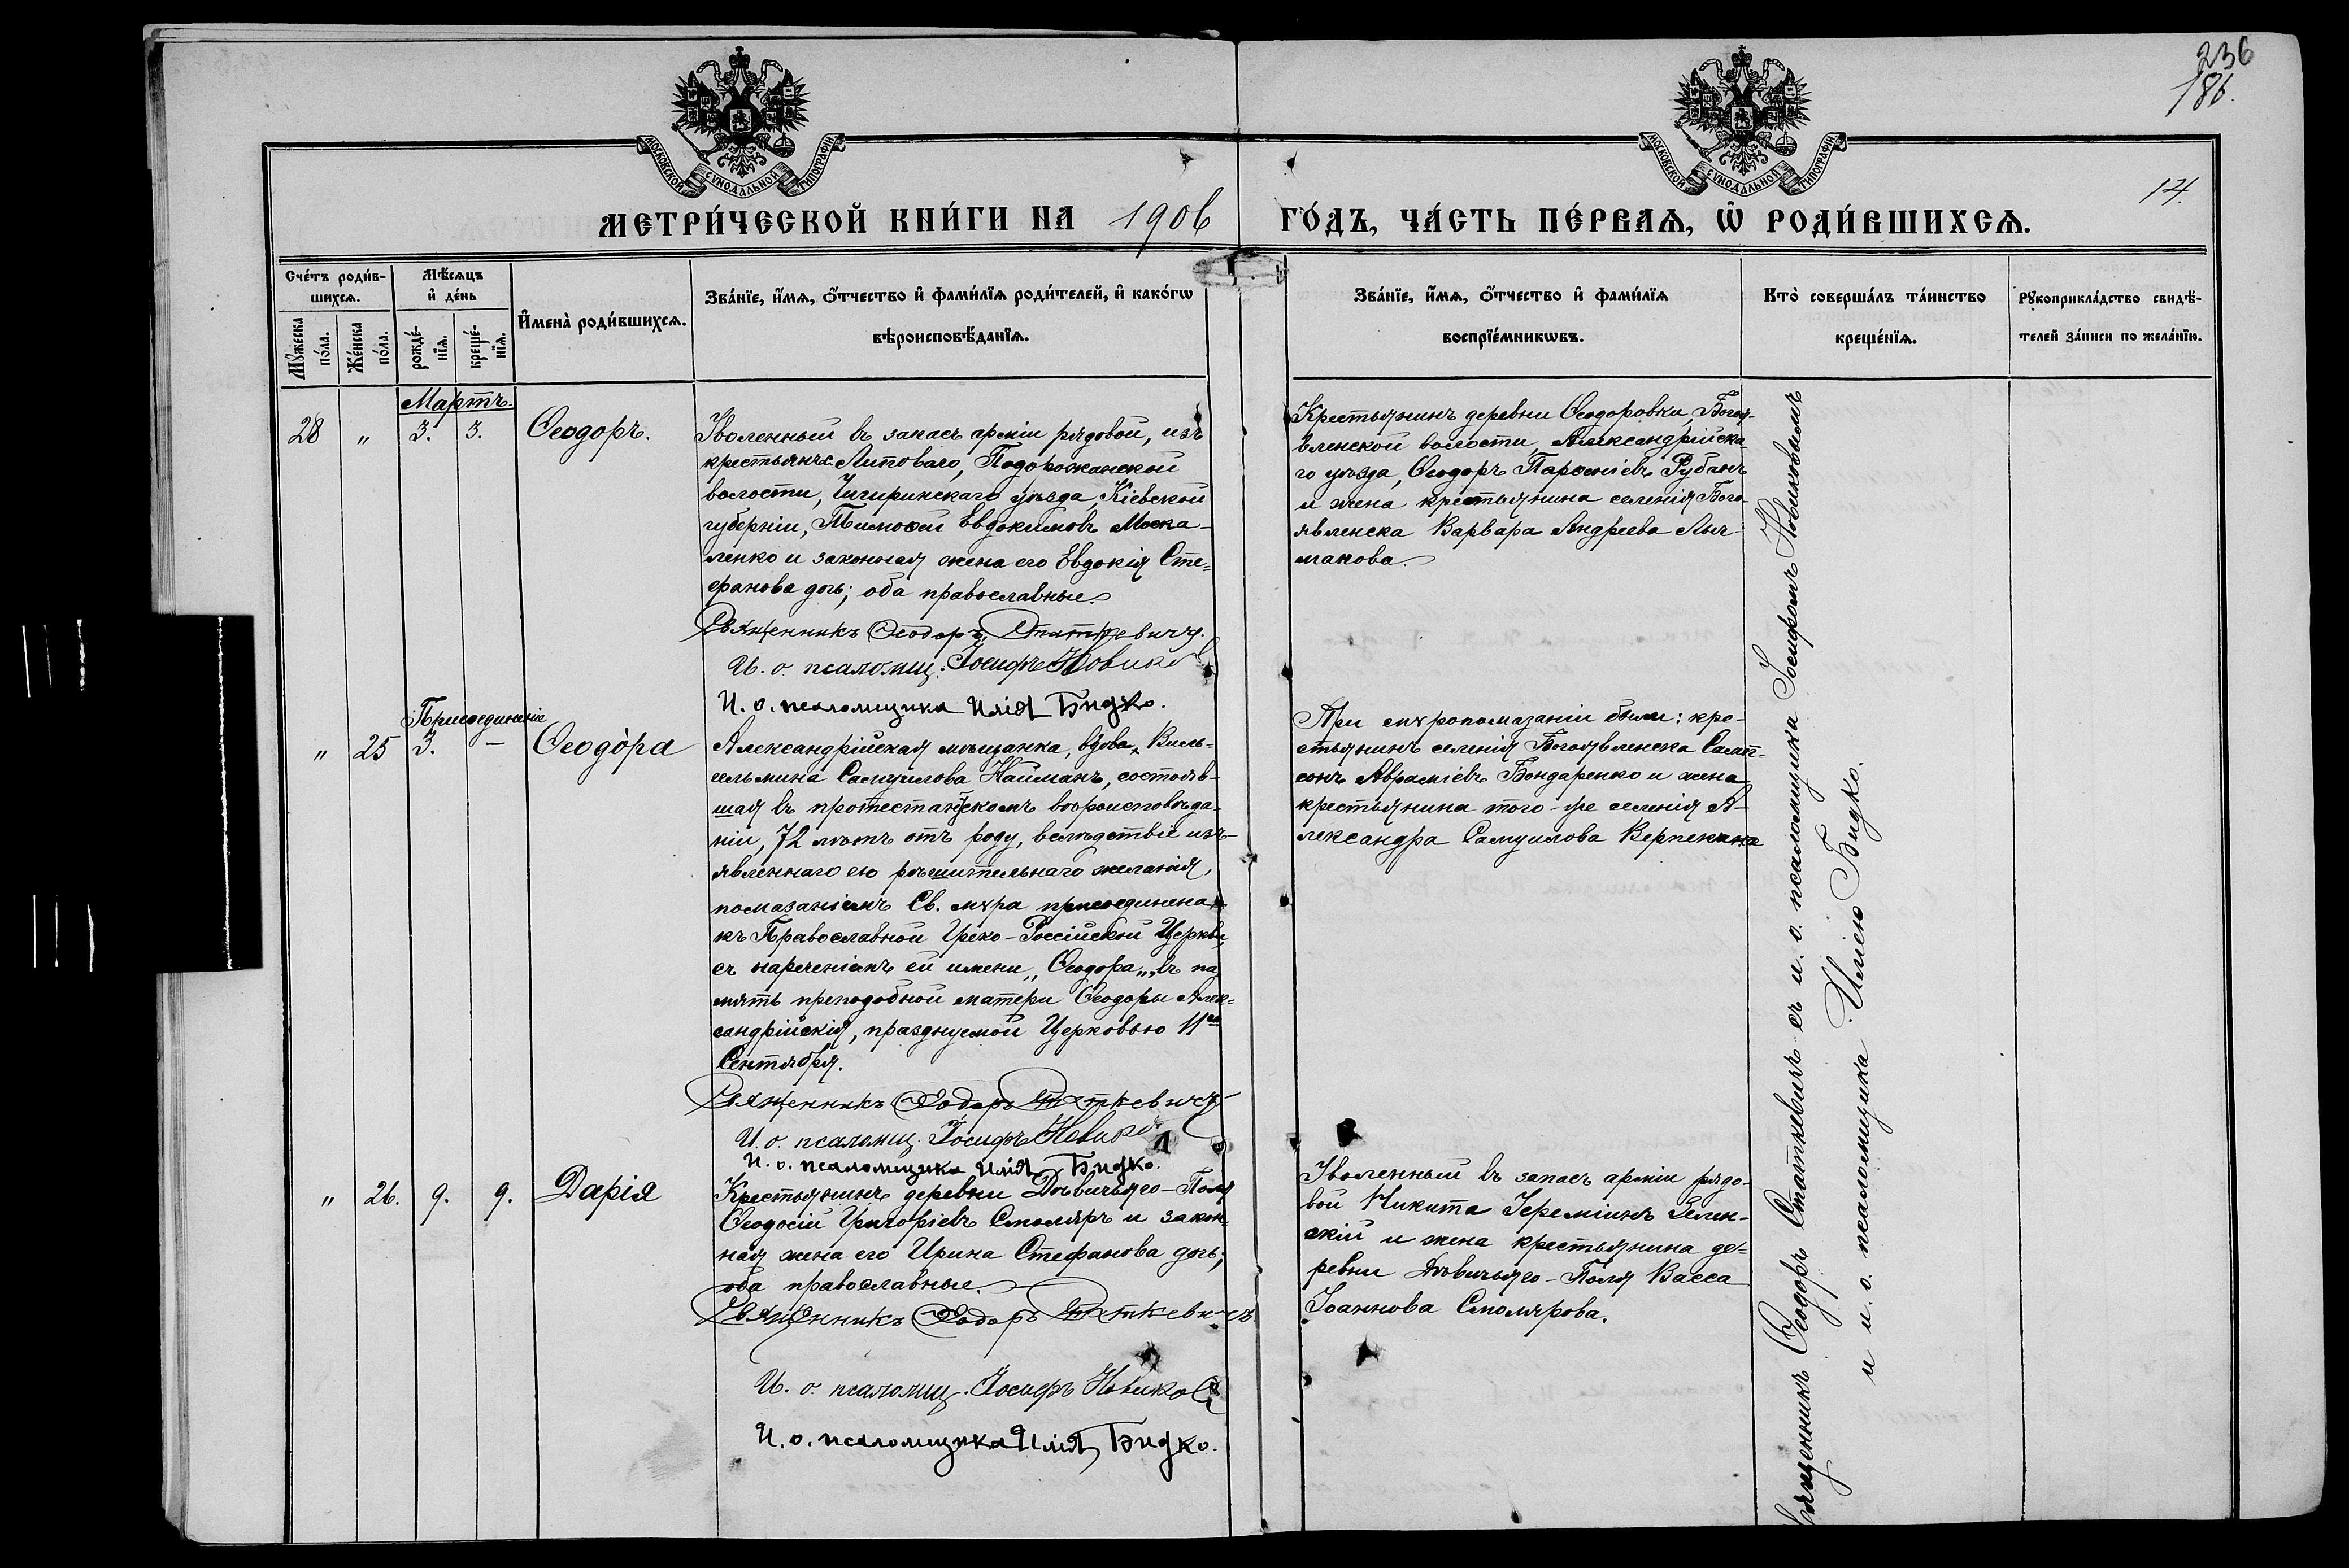 236
186.
14.
МОСКОВСКОЙ СѴНОДАЛЬНОЙ ТИПОГРАФІИ
МОСКОВСКОЙ СѴНОДАЛЬНОЙ ТИПОГРАФІИ
МЕТРИ́ЧЕСКОЙ КНИ́ГИ НА 1906 ГО́ДЪ, ЧА́СТЬ ПЕ́РВАѦ, Ѿ РОДИ́ВШИХСѦ.
Сче́тъ роди́в-
шихсѧ.
Мꙋ́жеска по́ла.
Же́нска по́ла.
Мѣ́сѧцъ
и҆ де́нь
рожде́-
нїѧ.
креще́-
нїѧ.
И҆мена̀ роди́вшихсѧ.
Зва́нїе, и҆́мѧ, ѻ҆́тчество и҆ фами́лїѧ роди́телей, и҆ како́гѡ
вѣроисповѣ́данїѧ.
Зва́нїе, и҆́мѧ, ѻ҆́тчество и҆ фами́лїѧ
воспрїе́мникѡвъ.
Кто̀ соверша́лъ та́инство
креще́нїѧ.
Рꙋкоприкла́дство свидѣ́-
телей за́писи по жела́нїю.
Мартъ.
28 " 3. 3. Ѳеодоръ.
Уволенный въ запасъ арміи рядовой, изъ
крестьянъ с. Липоваго, Подорожанской
волости, Чигиринскаго уѣзда, Кіевской
губерніи, Тимоѳей Евдокимовъ Моска-
ленко и законная жена его Евдокія Сте=
фанова дочь; оба православные.
Священникъ Ѳеодоръ Статкевичъ.
И. о. псаломщ. Іосифъ Новиковъ
И. о. псаломщика Илія Бидко.
Крестьянинъ деревни Ѳеодоровки, Богоя-
вленской волости, Александрійска
го уѣзда, Ѳеодоръ Парѳеніевъ Рубанъ
и жена крестьянина селенія Бого-
явленска Варвара Андреева Лыч-
макова.
Присоединеніе
" 25 3. — Ѳеодо̀ра
Александрійская мѣщанка, вдова, Виль=
гельмина Самуилова Найманъ, состояв-
шая въ протестантскомъ вѣроисповѣда-
ніи, 72 лѣтъ отъ роду, вслѣдствіе изъ-
явленнаго ею рѣшительнаго желанія,
помазаніемъ Св. мѵра присоединена
къ Православной Греко-Россійской Церкви,
съ нареченіемъ ей имени „Ѳеодора„, въ па
мять преподобной матери Ѳеодоры Алек=
сандрійскія, празднуемой Церковью 11го
Сентября.
Священникъ Ѳеодоръ Статкевичъ
И. о. псаломщ. Іосифъ Новиковъ
И. о. псаломщика Илія Бидко.
При мѵропомазаніи были: кре-
стьянинъ селенія Богоявленска Самп-
сонъ Авраміевъ Бондаренко и жена
крестьянина того-же селенія А-
лександра Самуилова Верпекина
" 26. 9. 9. Дарія
Крестьянинъ деревни Дѣвичьяго-Поля
Ѳеодосій Григоріевъ Столяръ и закон-
ная жена его Ирина Стефанова дочь;
оба православные.
Священникъ Ѳеодоръ Статкевичъ
И. о. псаломщ. Іосифъ Новиковъ
И. о. псаломщика Илія Бидко.
Уволенный въ запасъ арміи рядо-
вой Никита Іереміинъ Зелен-
скій и жена крестьянина де=
ревни Дѣвичьяго-Поля Васса
Іоаннова Столярова.
Священникъ Ѳеодоръ Статкевичъ съ и. о. псаломщика Іосифомъ Новиковымъ
и и. о. псаломщика Иліею Бидко.